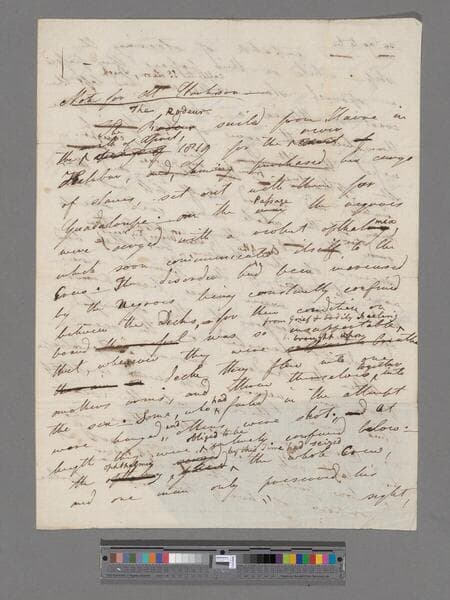 Note for Mr Harbison
The Rodeur
sailed from Havre in
the 24th of April, 1819 for the river
Calabar, and having purchased his cargo
of slaves, set out with them for
Guadaloupe: on the Passage the negroes
were seized with a violent opthalmia
which soon communicated itself to the
Crew. The disorder had been increased
by the Negroes being constantly confined
between the Decks, for their condition on
board was so insupportable from grief & bodily
that, whenever they were brought upon
Deck, they flew into one
anothers arms, and threw themselves together into
the sea. Some, who had failed in the attempt
were hanged, and others were shot, and at
length they were obliged to be entirely confined below.
The ophthalmy by this time had seized the whole Crew,
and one man only preserved his
sight,